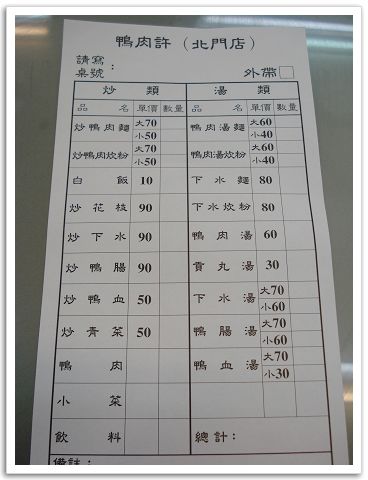 鴨肉許（北門店）
請寫
桌號：
外帶□
炒類 湯類
品名 單價 數量 品名 單價 數量
炒鴨肉麵 大70 小50 鴨肉湯麵 大60 小40
炒鴨肉炊粉 大70 小50 鴨肉湯炊粉 大60 小40
白飯 10 下水麵 80
炒花枝 90 下水炊粉 80
炒下水 90 鴨肉湯 60
炒鴨腸 90 貢丸湯 30
炒鴨血 50 下水湯 大70 小60
炒青菜 50 鴨腸湯 大70 小60
鴨肉 鴨血湯 大70 小30
小菜
飲料 總計：
備註：